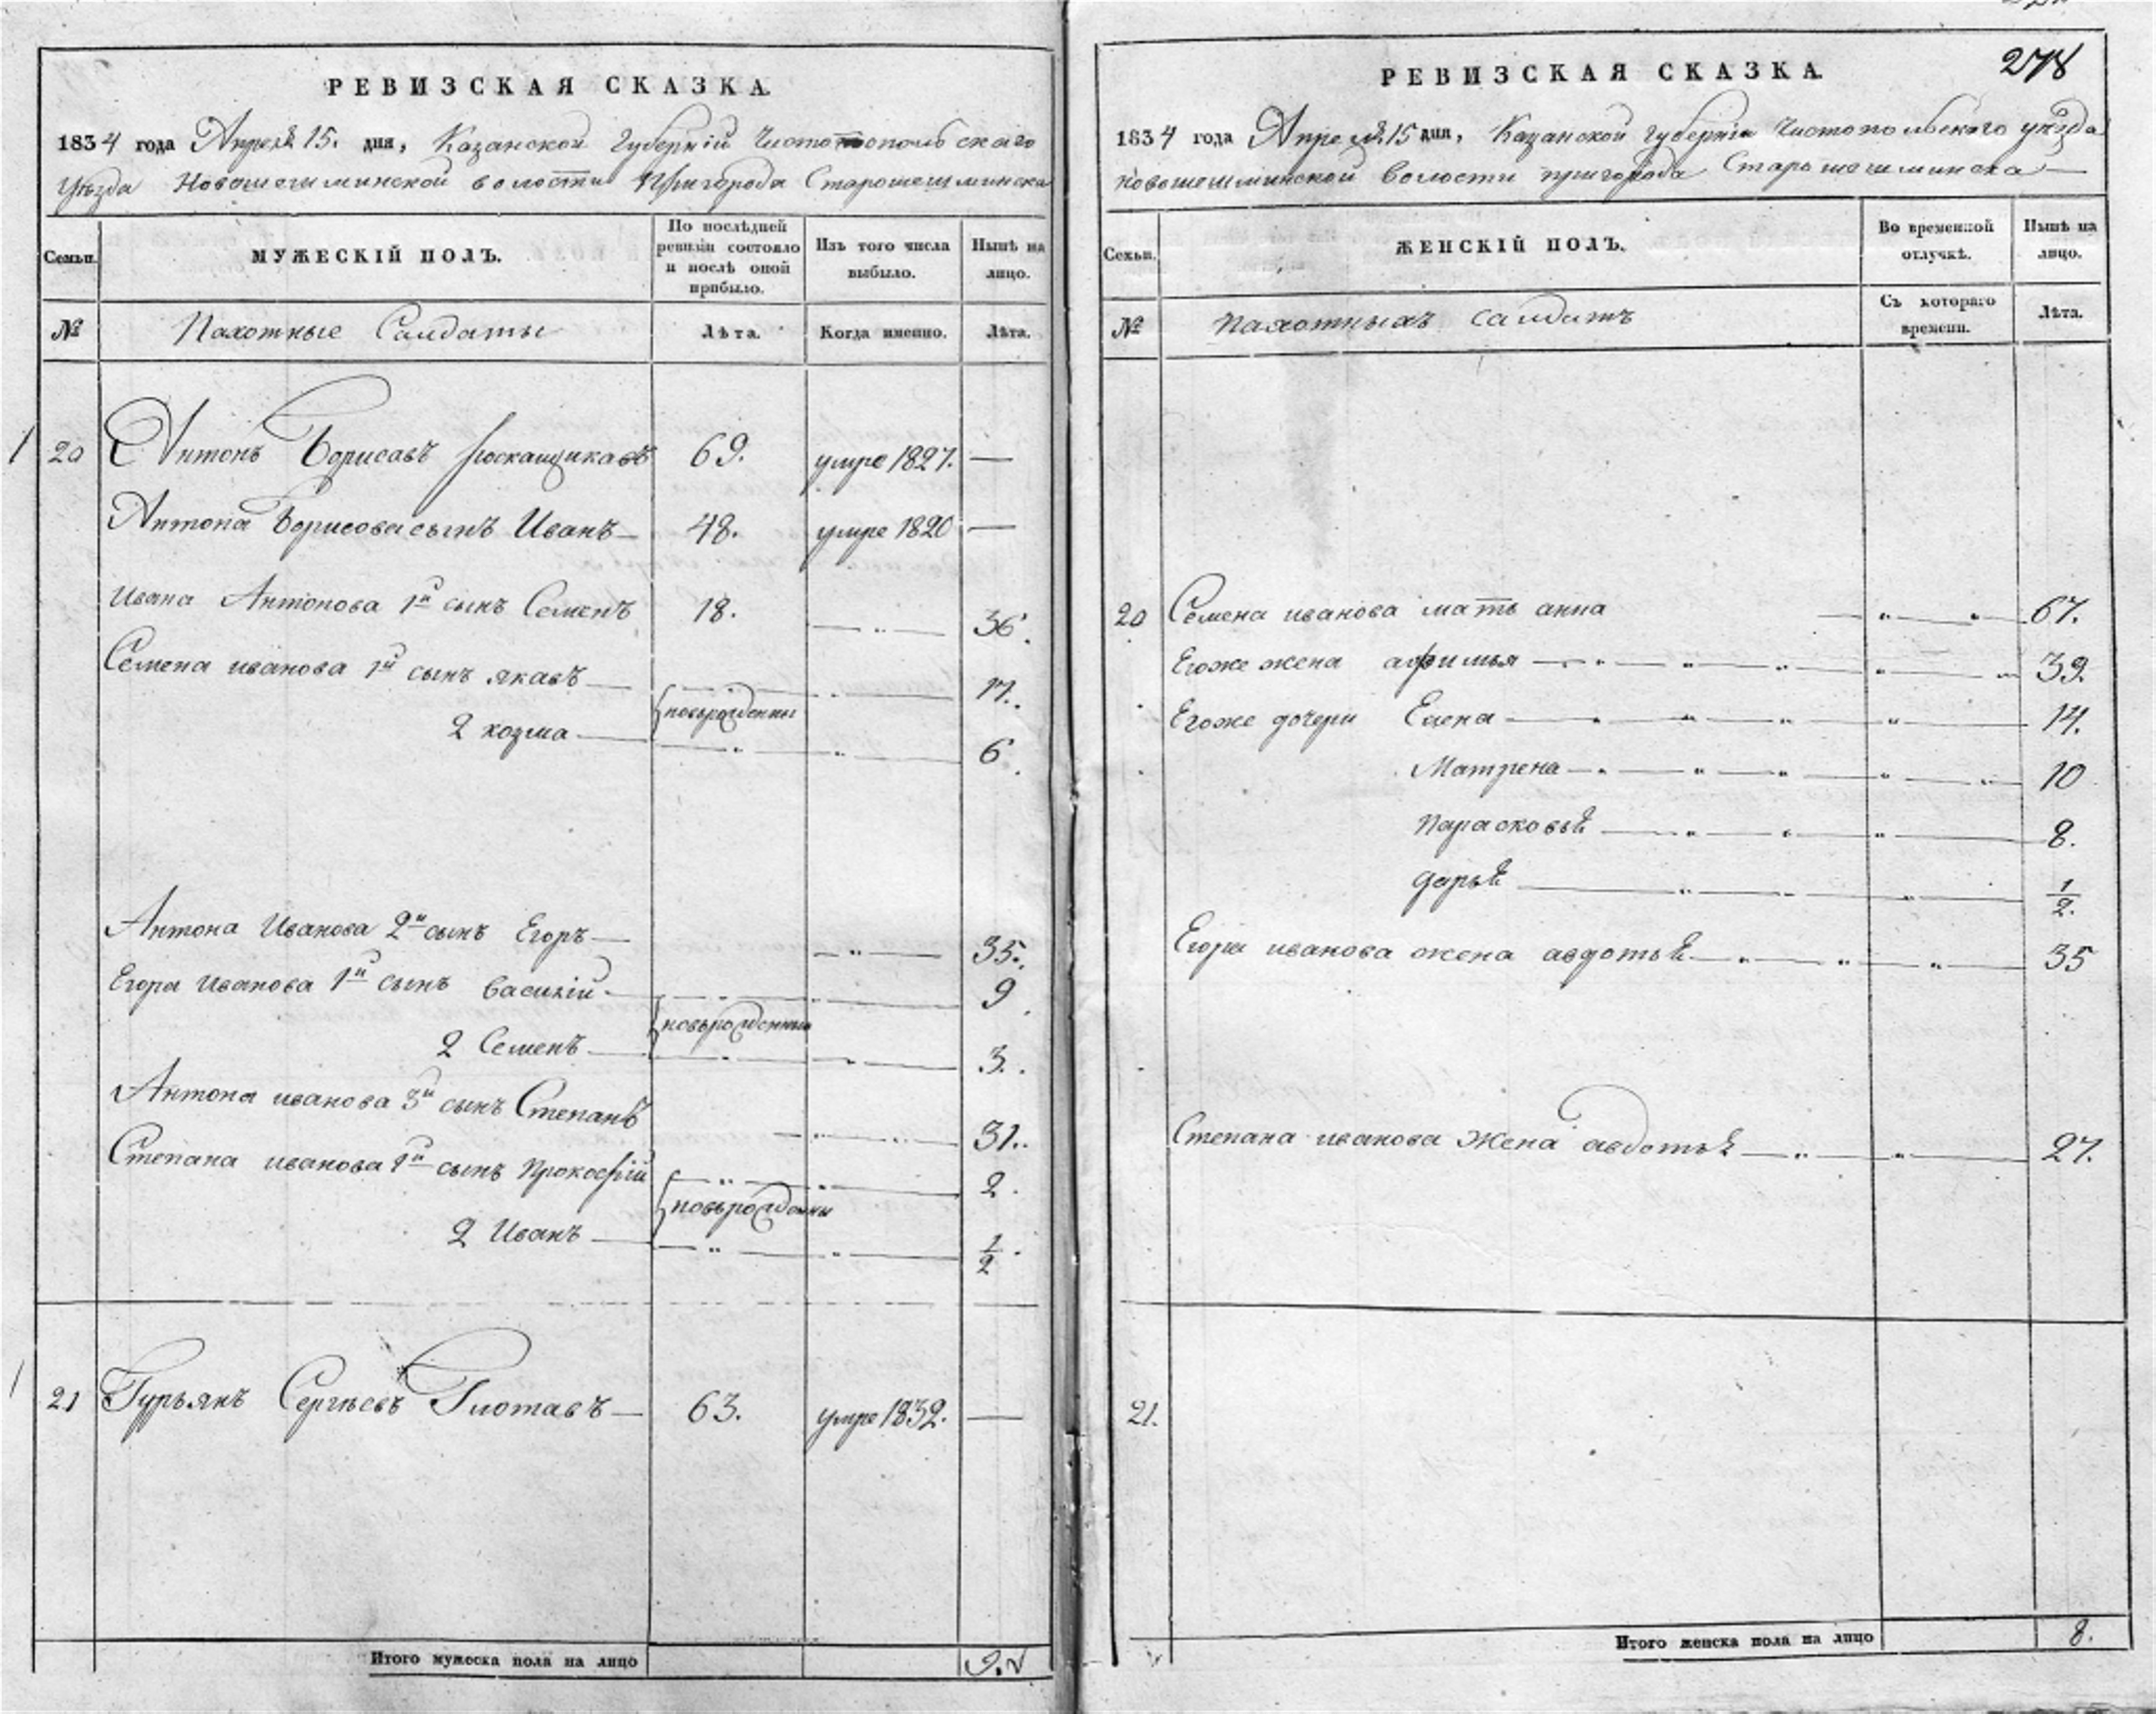 РЕВИЗСКАЯ СКАЗКА.
1834 года Апреля 15. дня, Казанской Губерніи Чистопольскаго
Уѣзда Новошешминской волости Пригорода Старошешминска
Семьи.
МУЖЕСКІЙ ПОЛЪ.
По послѣдней ревизіи состояло и послѣ оной прибыло.
Изъ того числа выбыло.
Нынѣ на лицо.
№
Пахотные Салдаты
Лѣта.
Когда именно.
Лѣта.
20 Антонъ Борисавъ 69. умре 1827. —
Антона Борисова сынъ Иванъ — 48. умре 1820 —
Ивана Антонова 1й сынъ Семенъ 18. — „ — 36.
Семена иванова 1й сынъ якавъ — 17.
новьрожденны
2 козма — „ „ 6.
Антона Иванова 2й сынъ Егоръ — — „ — 35.
Егора Иванова 1й сынъ Василій — 9.
новьрожденныи
2 Семенъ — 3.
Антона иванова 3й сынъ Степанъ 31.
Степана иванова 1й сынъ прокофій 2.
новьрожденны
2 Иванъ — „ „ 1/2.
21 Гурьянъ Сергѣевъ Глотавъ — 63. умре 1832. —
Итого мужеска пола на лицо 9.
278
РЕВИЗСКАЯ СКАЗКА.
1834 года Апреля 15 дня, Казанской губерніи Чистопольскаго уѣзда
Новошешминской волости пригорода Старошешминска —
Семьи.
ЖЕНСКІЙ ПОЛЪ.
Во временной отлучкѣ.
Нынѣ на лицо.
№
пахотныхъ салдатъ
Съ котораго времени.
Лѣта.
20 Семена иванова мать анна — „ „ 67.
Егоже жена афимья — „ — „ — „ „ 39.
Егоже дочери Елена — „ — „ — „ „ 14.
Матрена — „ — „ — „ „ 10
парасковьѣ — „ „ „ 8.
дарьѣ — „ „ „ 1/2.
Егора иванова жена авдотьѣ — „ „ „ 35
Степана иванова жена авдотьѣ — „ „ 27.
21.
Итого женска пола на лицо 8.